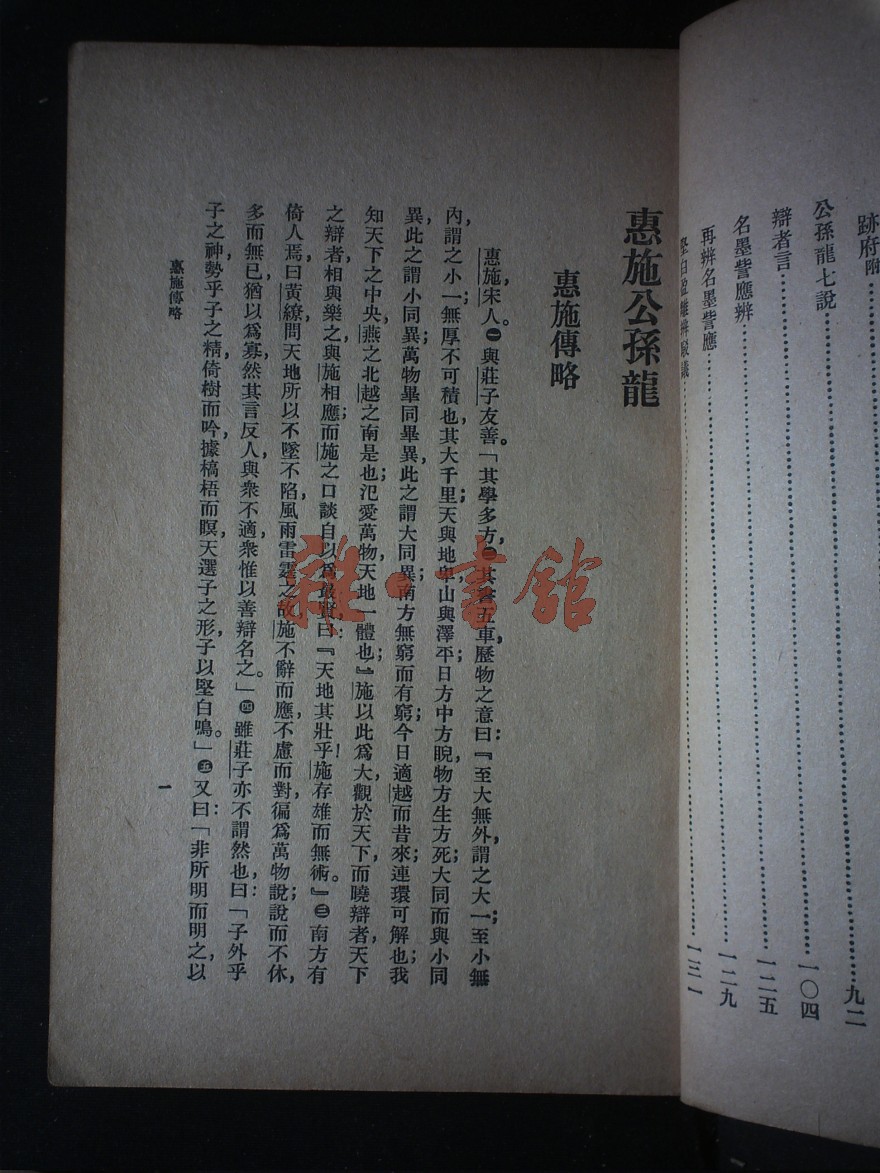 跡府附……九二
公孫龍七說……一〇四
辯者言……一二五
名墨訾應辨……一二九
再辨名墨訾應……一三一
惠施公孫龍
惠施傳略
惠施，宋人。㊀與莊子友善。「其學多方，㊁其書五車，歷物之意曰：『至大無外，謂之大一；至小無
內，謂之小一。無厚不可積也，其大千里；天與地卑，山與澤平；日方中方睨，物方生方死；大同而與小同
異，此之謂小同異；萬物畢同畢異，此之謂大同異；南方無窮而有窮；今日適越而昔來；連環可解也；我
知天下之中央，燕之北，越之南是也；氾愛萬物，天地一體也。』施以此爲大觀於天下，而曉辯者，天下
之辯者相與樂之，與施相應；而施之口談，自以爲最賢，曰：『天地其壯乎！施存雄而無術。』㊂南方有
倚人焉，曰黃繚，問天地所以不墜不陷，風雨雷霆之故，施不辭而應，不慮而對，徧爲萬物說；說而不休，
多而無已，猶以爲寡，然其言反人，與衆不適，衆惟以善辯名之。」㊃雖莊子亦不謂然也，曰：「子外乎
子之神，勢乎子之精，倚樹而吟，據槁梧而瞑，天選子之形，子以堅白鳴。」㊄又曰：「非所明而明之，以
惠施傳略
一
雜·書館